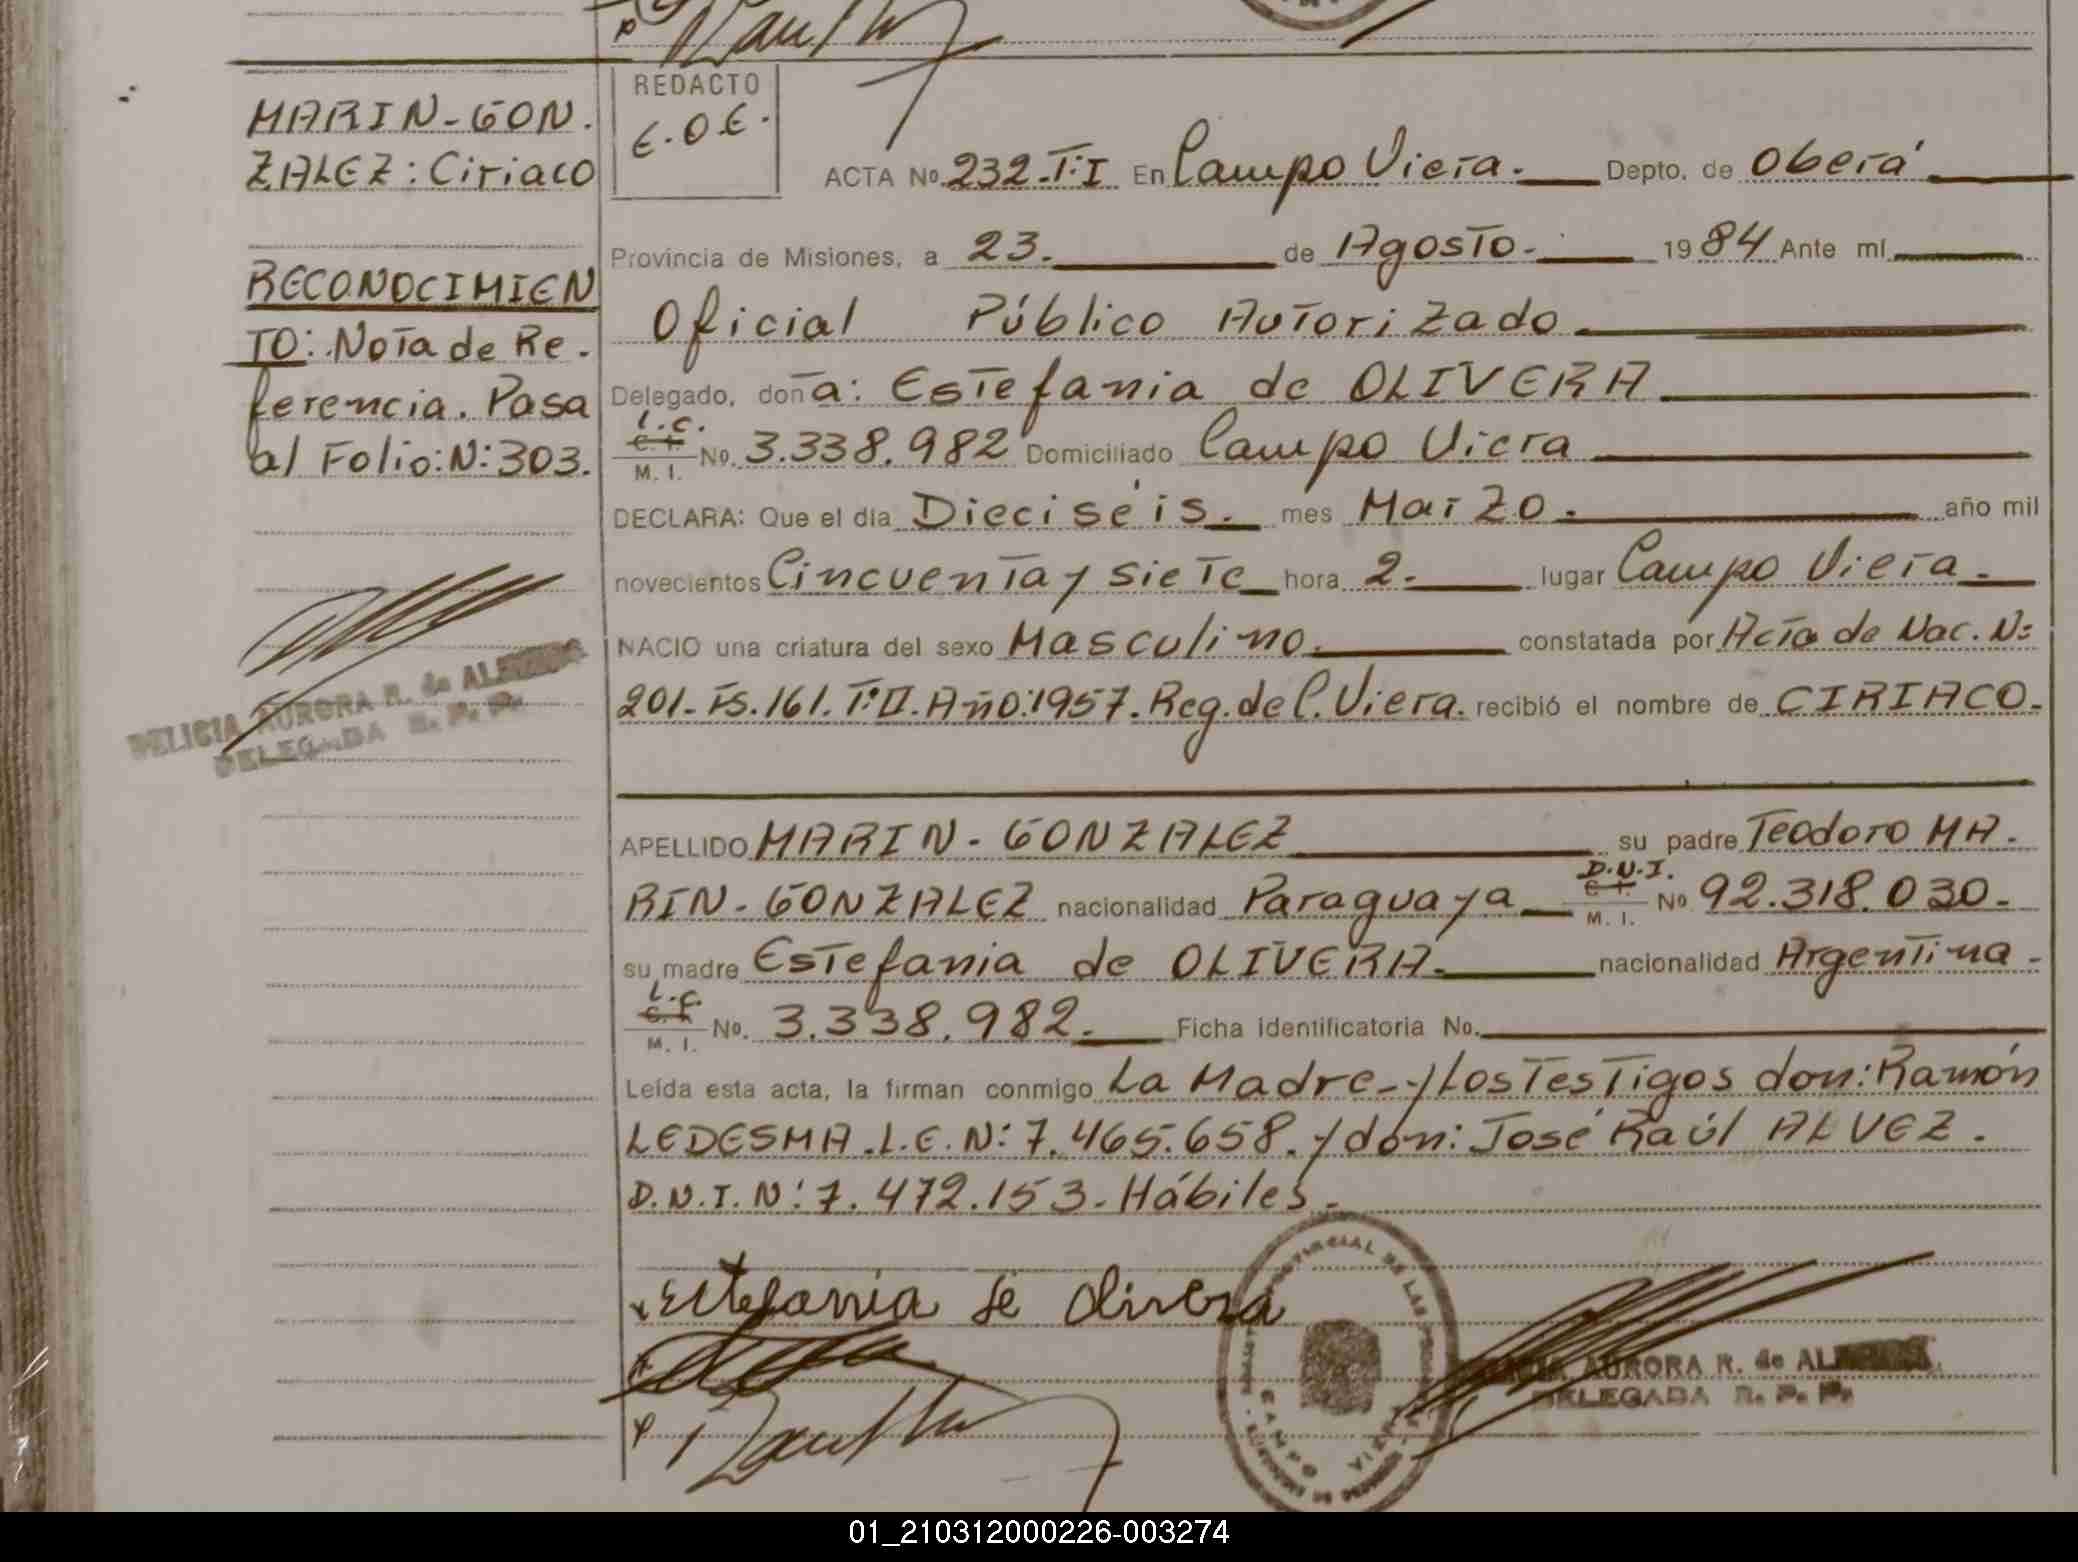 MARIN-GON.
ZALEZ: Ciriaco
RECONOCIMIEN
TO: Nota de Re.
ferencia. Pasa
al Folio: N: 303.
DELICIA AURORA R. de
DELEGADA R. P. P.
REDACTO
E.O.E.
ACTA No. 232-T:I En Campo Viera. Depto. de Oberá
Provincia de Misiones, a 23. de Agosto. 1984 Ante mí
Oficial Público Autorizado
Delegado, doña: Estefania de OLIVERA
L.C.
C. I.
M. I. No. 3.338.982 Domiciliado Campo Viera
DECLARA: Que el día Dieciséis. mes Marzo. año mil
novecientos Cincuenta y siete hora 2. lugar Campo Viera.
NACIO una criatura del sexo Masculino. constatada por Acta de Nac. N:
201-Fs.161. T:II. Año:1957. Reg. de C. Viera. recibió el nombre de CIRIACO.
APELLIDO MARIN-GONZALEZ su padre Teodoro MA.
D.N.I.
C. I.
RIN-GONZALEZ nacionalidad Paraguaya M. I. No 92.318.030.
su madre Estefania de OLIVERA. nacionalidad Argentina.
L.C.
C. I.
M. I. No. 3.338.982. Ficha identificatoria No.
Leída esta acta, la firman conmigo La Madre-y Los Testigos don: Ramón
LEDESMA. L.E. N: 7.465.658. y don: José Raúl ALVEZ.
D.N.I. N: 7.472.153-Hábiles.
x Estefania de Olivera
PROVINCIAL DE LAS
CAMPO VIERA
AURORA R. de
DELEGADA R. P. P.
01_210312000226-003274